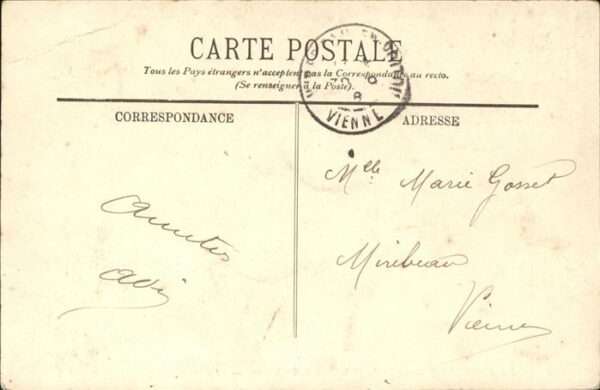 CARTE POSTALE
Tous les Pays étrangers n'acceptent pas la Correspondance au recto.
(Se renseigner à la Poste).
CORRESPONDANCE
ADRESSE
VIENNE
Mlle Marie Gosset
Mirebeau
Vienne